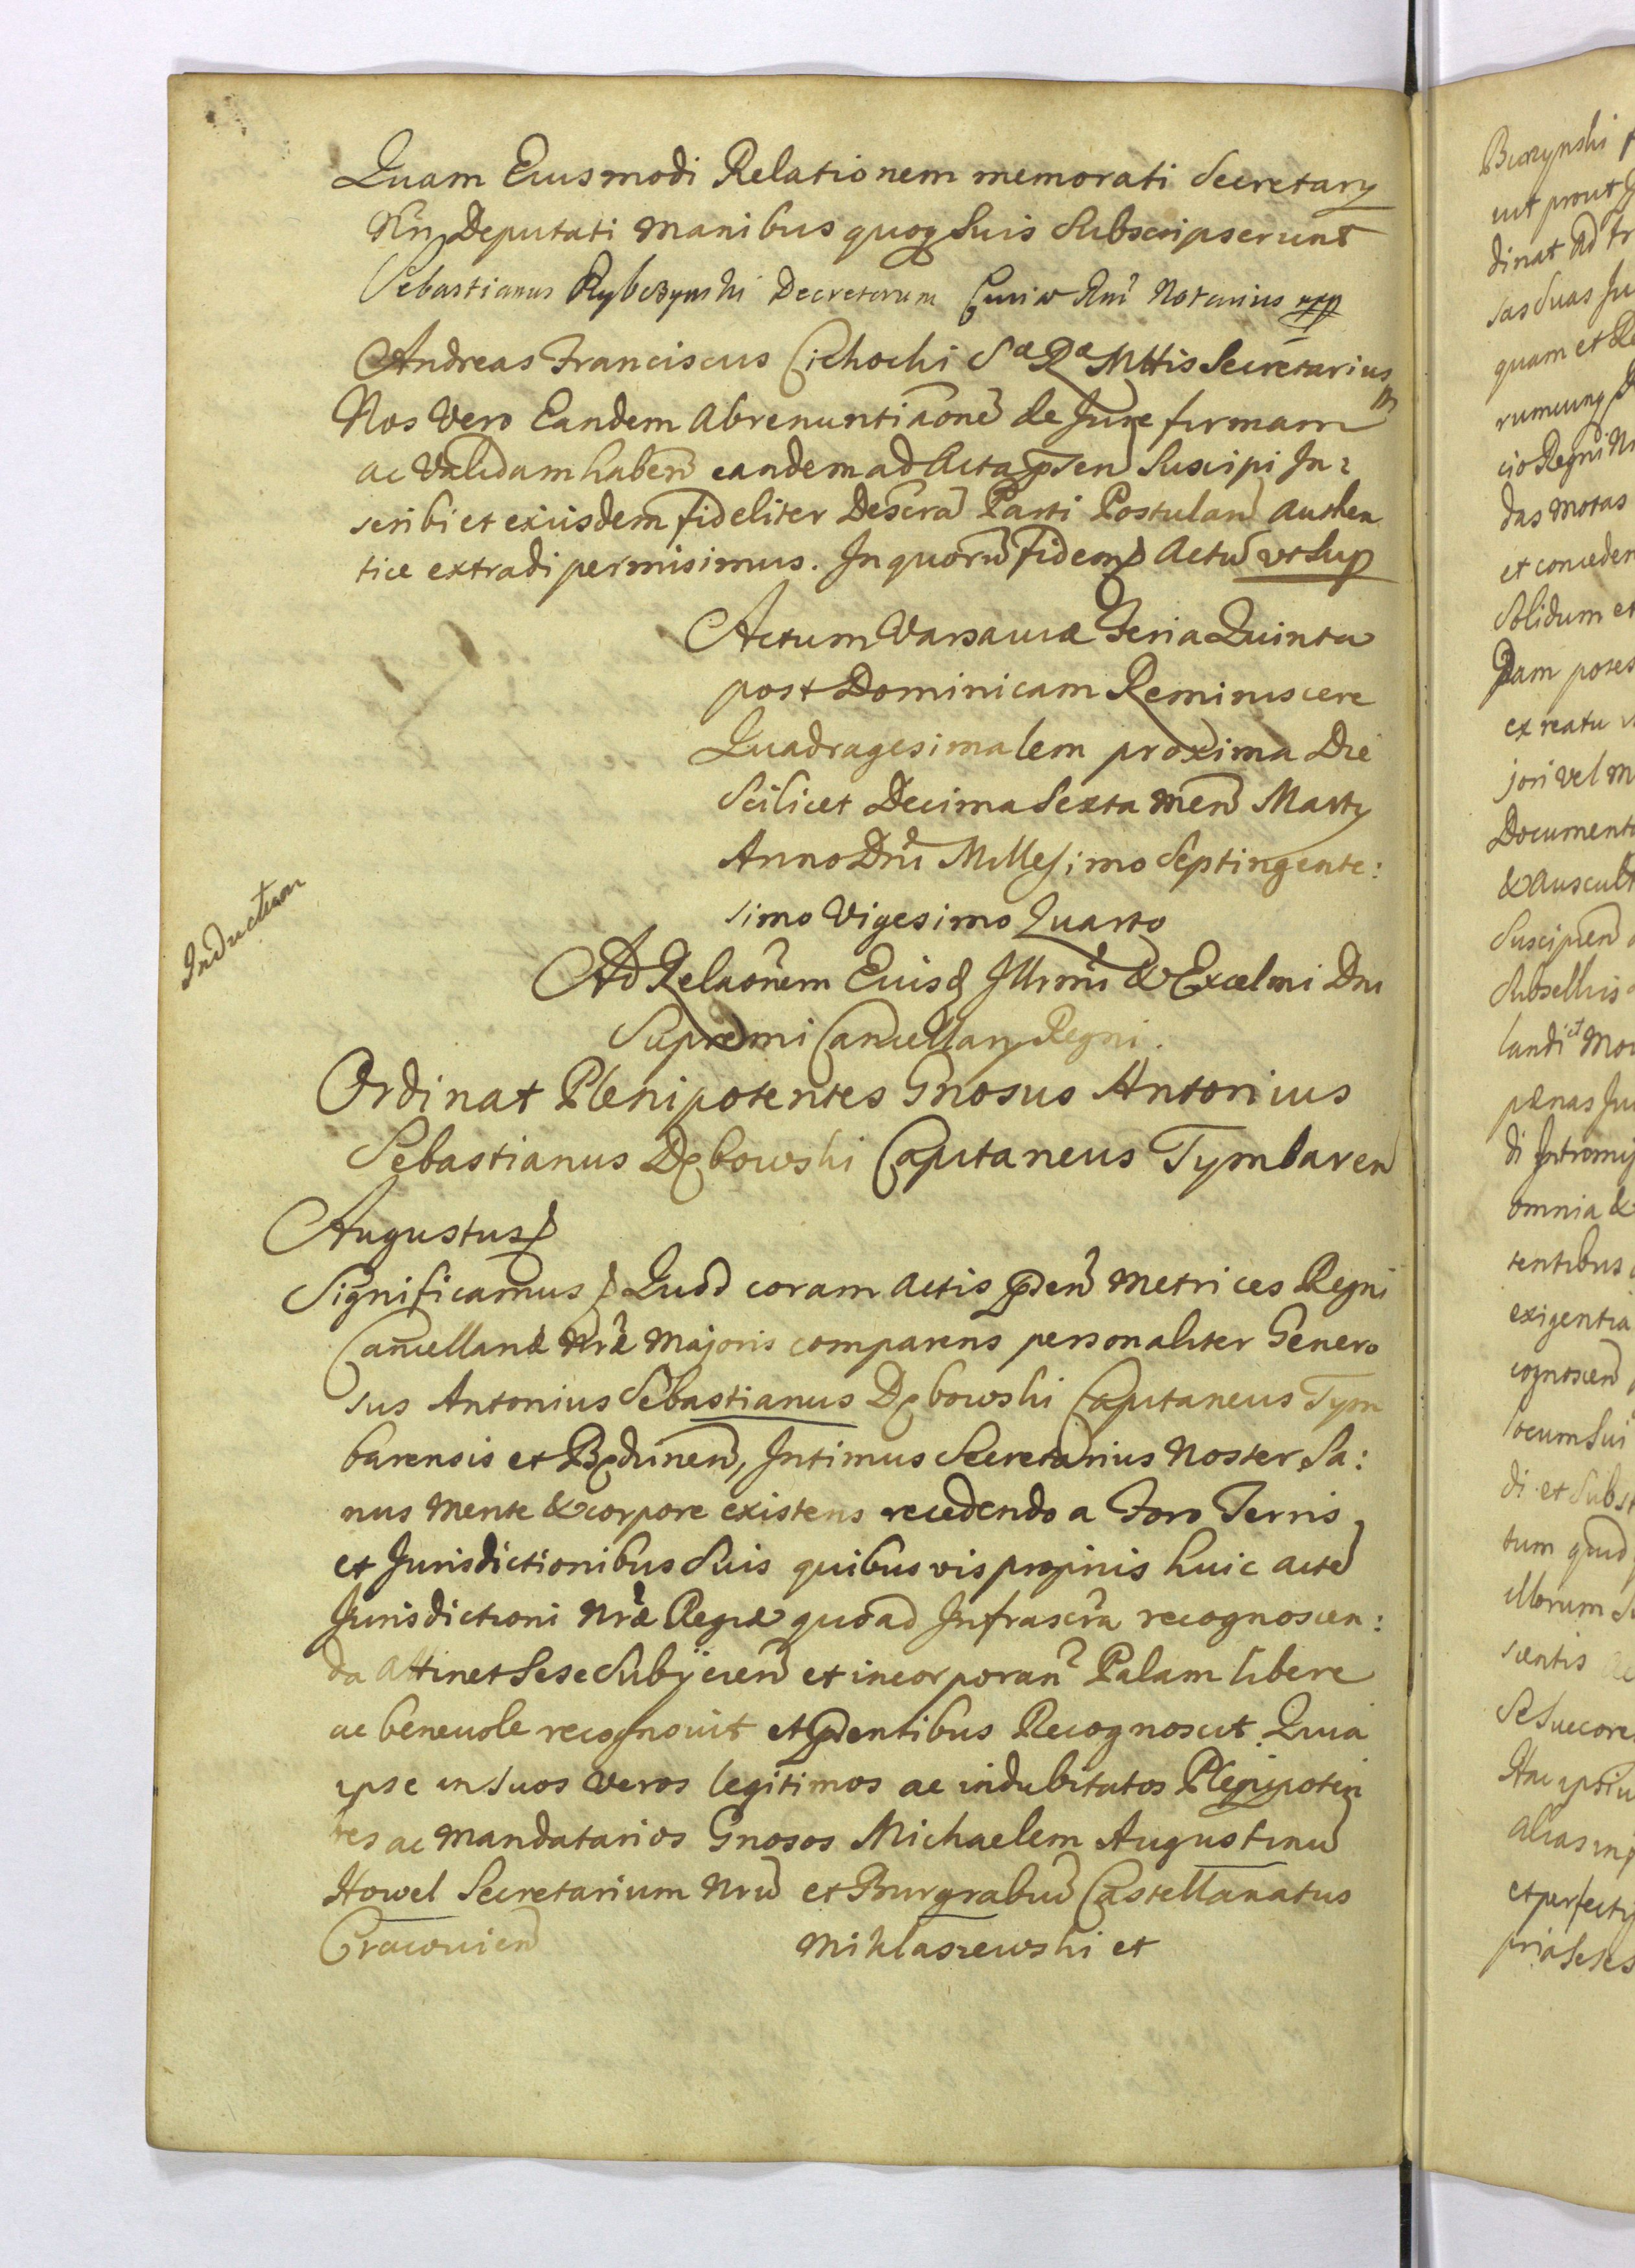 Quam Eiusmodi Relationem memorati Secretary
Nri Deputati manibus quoq Suis Subscripserunt
Sebastianus Rybczynski Decretorum Curiæ Rni Notarius mpp
Andreas Franciscus Cichocki Sæ Ræ Mttis Secretarius
Nos Vero Eandem Abrenuntiaone de Jure firmam
ac Validam haben eandem ad Acta psen Suscipi In:
scribi et eiusdem fideliter Descra Parti Postulan authen
tice extradi permisimus. In quoru fidem Actu ut Sup
Actum Varsaviæ Feria Quinta
post Dominicam Reminiscere
Quadragesimalem proxima Die
Scilicet Decima Sexta men Marty
Anno Dni Millesimo Septingente:
simo Vigesimo Quarto
Induction
Ad Relaonem Eiusd Illrmi & Excelmi Dni
Supremi Cancellary Regni.
Ordinat Plenipotentes Gnosus Antonius
Sebastianus Dębowski Capitaneus Tymbaren
Augustus
Significamus Quod coram Actis psen Metrices Regni
Cancellariæ Nræ Majoris comparens personaliter Genero
sus Antonius Sebastianus Dębowski Capitaneus Tym
barensis et Będzinen, Intimus Secretarius Noster Sa:
nus mente & corpore existens recedendo a Foro Terris
et Jurisdictionibus Suis quibusvis propriis huic acte
Jurisdictioni Nræ Regiæ quoad Infrascra recognoscen:
da attinet Sese Subijcien et incorporan Palam libere
ac benevole recognovit et pntibus Recognoscit Quia
ipse in Suos Veros legitimos ac indubitatos Plenipoten
tes ac mandatarios Gnosos Michaelem Augustinu
Howel Secretarium Nru et Burgrabiu Castellanatus
Cracovien Miklaszewski et
Buczynski
uit prout
dinat ad
sas Suas
quam et
Regni
das motas
et
Solidum et
ex reatu
jori vel
& auscult
Suscipien
Subselliis
landi et
pænas
di
omnia &
tentibus
exigentia
cognoscen
locum Sui
di et
tum
illorum
alias
et